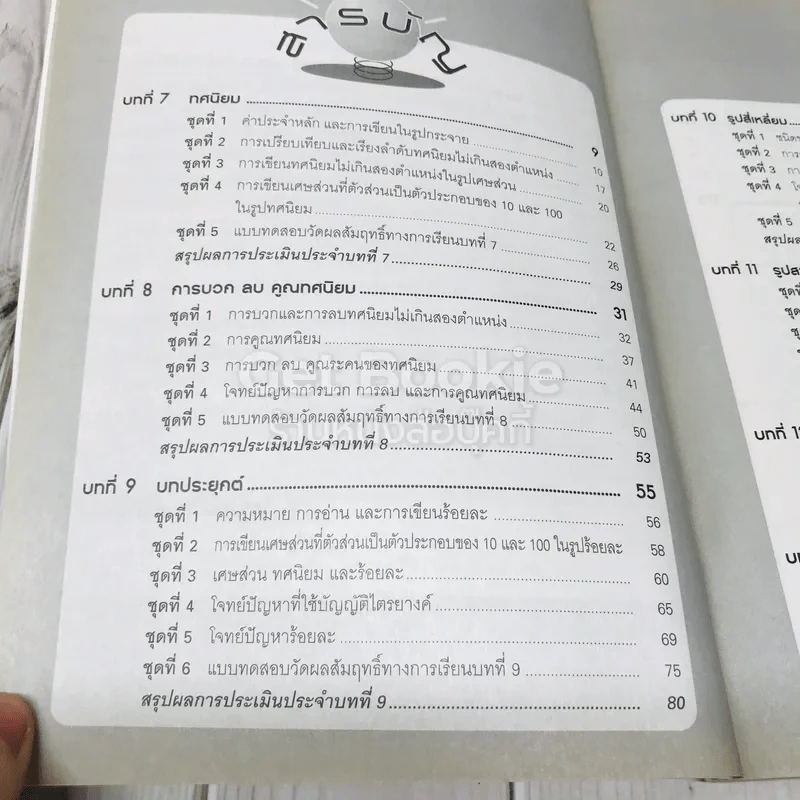 สารบัญ
บทที่ 7 ทศนิยม ........ 9
ชุดที่ 1 ค่าประจำหลัก และการเขียนในรูปกระจาย ........ 10
ชุดที่ 2 การเปรียบเทียบและเรียงลำดับทศนิยมไม่เกินสองตำแหน่ง ........ 17
ชุดที่ 3 การเขียนทศนิยมไม่เกินสองตำแหน่งในรูปเศษส่วน ........ 20
ชุดที่ 4 การเขียนเศษส่วนที่ตัวส่วนเป็นตัวประกอบของ 10 และ 100
ในรูปทศนิยม ........ 22
ชุดที่ 5 แบบทดสอบวัดผลสัมฤทธิ์ทางการเรียนบทที่ 7 ........ 26
สรุปผลการประเมินประจำบทที่ 7 ........ 29
บทที่ 8 การบวก ลบ คูณทศนิยม ........ 31
ชุดที่ 1 การบวกและการลบทศนิยมไม่เกินสองตำแหน่ง ........ 32
ชุดที่ 2 การคูณทศนิยม ........ 37
ชุดที่ 3 การบวก ลบ คูณระคนของทศนิยม ........ 41
ชุดที่ 4 โจทย์ปัญหาการบวก การลบ และการคูณทศนิยม ........ 44
ชุดที่ 5 แบบทดสอบวัดผลสัมฤทธิ์ทางการเรียนบทที่ 8 ........ 50
สรุปผลการประเมินประจำบทที่ 8 ........ 53
บทที่ 9 บทประยุคต์ ........ 55
ชุดที่ 1 ความหมาย การอ่าน และการเขียนร้อยละ ........ 56
ชุดที่ 2 การเขียนเศษส่วนที่ตัวส่วนเป็นตัวประกอบของ 10 และ 100 ในรูปร้อยละ 58
ชุดที่ 3 เศษส่วน ทศนิยม และร้อยละ ........ 60
ชุดที่ 4 โจทย์ปัญหาที่ใช้บัญญัติไตรยางค์ ........ 65
ชุดที่ 5 โจทย์ปัญหาร้อยละ ........ 69
ชุดที่ 6 แบบทดสอบวัดผลสัมฤทธิ์ทางการเรียนบทที่ 9 ........ 75
สรุปผลการประเมินประจำบทที่ 9 ........ 80
Get Bookie
ร้านหนังสือบุ๊คกี้
บทที่ 10 รูปสี่เหลี่ยม
ชุดที่ 1
ชุดที่ 2
ชุดที่ 3
ชุดที่ 4
ชุดที่ 5
สรุปผล
บทที่ 11
ชุดที่
ชุดที่
ชุดที่